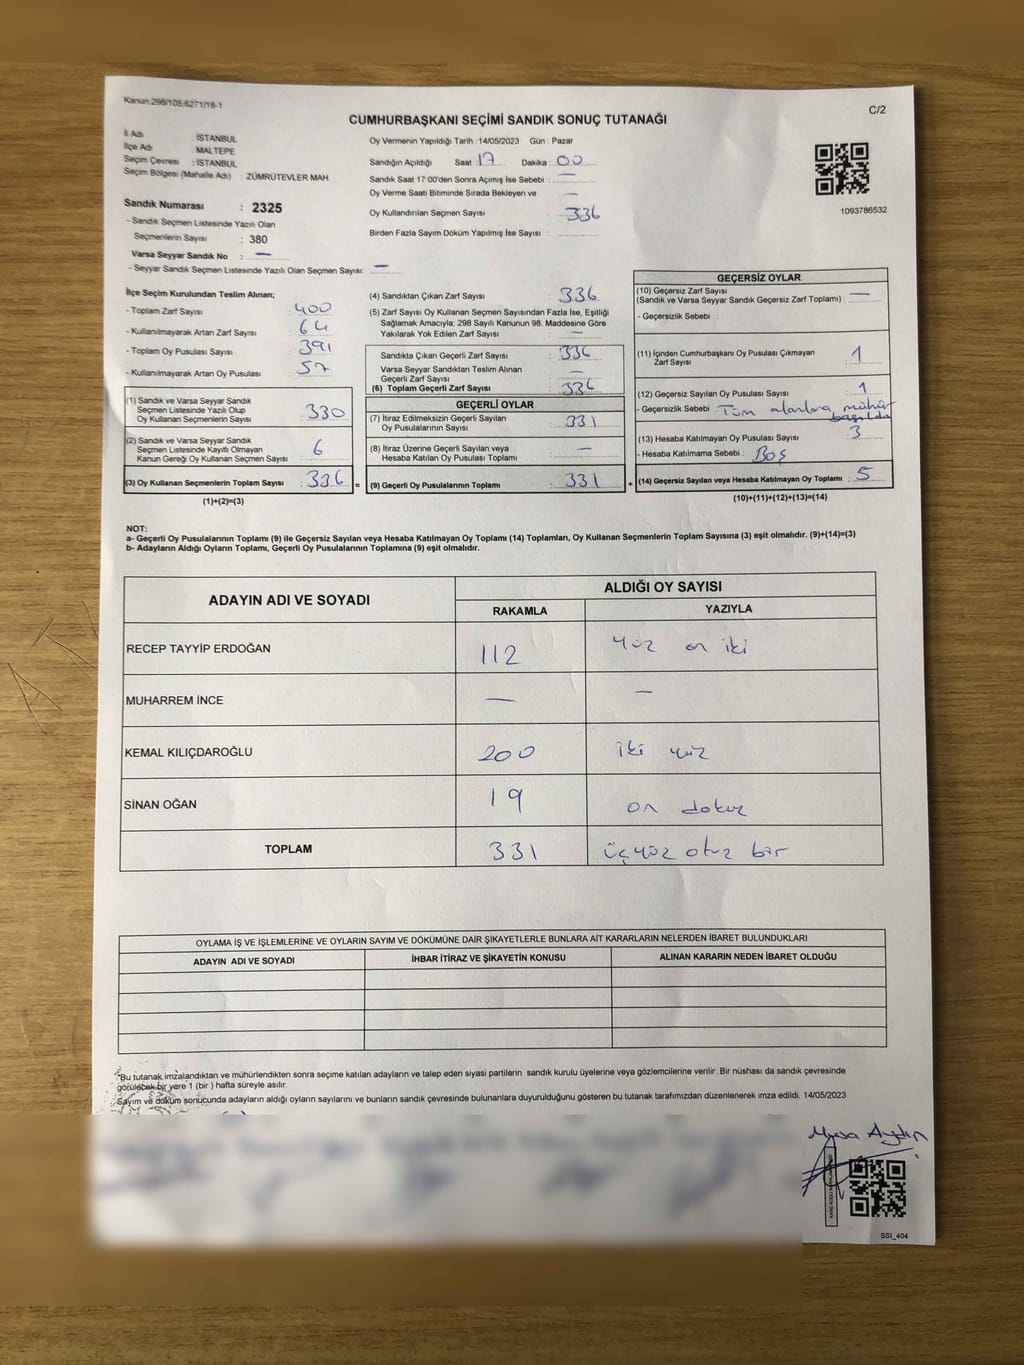 Kanun,298/105,6271/18-1
C/2
CUMHURBAŞKANI SEÇİMİ SANDIK SONUÇ TUTANAĞI
İl Adı : İSTANBUL
İlçe Adı : MALTEPE
Seçim Çevresi : İSTANBUL
Seçim Bölgesi (Mahalle Adı) : ZÜMRÜTEVLER MAH.
Sandık Numarası : 2325
- Sandık Seçmen Listesinde Yazılı Olan
Seçmenlerin Sayısı : 380
Varsa Seyyar Sandık No : —
- Seyyar Sandık Seçmen Listesinde Yazılı Olan Seçmen Sayısı: —
Oy Vermenin Yapıldığı Tarih :14/05/2023 Gün : Pazar
Sandığın Açıldığı Saat 17 Dakika : 00
Sandık Saat 17:00'den Sonra Açımış İse Sebebi : —
Oy Verme Saati Bitiminde Sırada Bekleyen ve —
Oy Kullandırılan Seçmen Sayısı : 336
Birden Fazla Sayım Döküm Yapılmış İse Sayısı :
1093786532
İlçe Seçim Kurulundan Teslim Alınan;
- Toplam Zarf Sayısı : 400
- Kullanılmayarak Artan Zarf Sayısı : 64
- Toplam Oy Pusulası Sayısı : 391
- Kullanılmayarak Artan Oy Pusulası : 57
(1) Sandık ve Varsa Seyyar Sandık
Seçmen Listesinde Yazılı Olup
Oy Kullanan Seçmenlerin Sayısı : 330
(2) Sandık ve Varsa Seyyar Sandık
Seçmen Listesinde Kayıtlı Olmayan
Kanun Gereği Oy Kullanan Seçmen Sayısı : 6
(3) Oy Kullanan Seçmenlerin Toplam Sayısı : 336
(1)+(2)=(3)
(4) Sandıktan Çıkan Zarf Sayısı : 336
(5) Zarf Sayısı Oy Kullanan Seçmen Sayısından Fazla İse, Eşitliği
Sağlamak Amacıyla; 298 Sayılı Kanunun 98. Maddesine Göre
Yakılarak Yok Edilen Zarf Sayısı : —
Sandıkta Çıkan Geçerli Zarf Sayısı : 336
Varsa Seyyar Sandıktan Teslim Alınan
Geçerli Zarf Sayısı : —
(6) Toplam Geçerli Zarf Sayısı : 336
GEÇERLİ OYLAR
(7) İtiraz Edilmeksizin Geçerli Sayılan
Oy Pusulalarının Sayısı : 331
(8) İtiraz Üzerine Geçerli Sayılan veya
Hesaba Katılan Oy Pusulası Toplamı : —
= (9) Geçerli Oy Pusulalarının Toplamı : 331
GEÇERSİZ OYLAR
(10) Geçersiz Zarf Sayısı
(Sandık ve Varsa Seyyar Sandık Geçersiz Zarf Toplamı) : —
- Geçersizlik Sebebi :
(11) İçinden Cumhurbaşkanı Oy Pusulası Çıkmayan
Zarf Sayısı : 1
(12) Geçersiz Sayılan Oy Pusulası Sayısı : 1
- Geçersizlik Sebebi : Tüm alanlara mühür
basıldı
(13) Hesaba Katılmayan Oy Pusulası Sayısı : 3
- Hesaba Katılmama Sebebi : Boş
+ (14) Geçersiz Sayılan veya Hesaba Katılmayan Oy Toplamı : 5
(10)+(11)+(12)+(13)=(14)
NOT:
a- Geçerli Oy Pusulalarının Toplamı (9) ile Geçersiz Sayılan veya Hesaba Katılmayan Oy Toplamı (14) Toplamları, Oy Kullanan Seçmenlerin Toplam Sayısına (3) eşit olmalıdır. (9)+(14)=(3)
b- Adayların Aldığı Oyların Toplamı, Geçerli Oy Pusulalarının Toplamına (9) eşit olmalıdır.
ADAYIN ADI VE SOYADI
ALDIĞI OY SAYISI
RAKAMLA YAZIYLA
RECEP TAYYİP ERDOĞAN 112 yüz on iki
MUHARREM İNCE — —
KEMAL KILIÇDAROĞLU 200 iki yüz
SİNAN OĞAN 19 on dokuz
TOPLAM 331 üçyüz otuz bir
OYLAMA İŞ VE İŞLEMLERİNE VE OYLARIN SAYIM VE DÖKÜMÜNE DAİR ŞİKAYETLERLE BUNLARA AİT KARARLARIN NELERDEN İBARET BULUNDUKLARI
ADAYIN ADI VE SOYADI İHBAR İTİRAZ VE ŞİKAYETİN KONUSU ALINAN KARARIN NEDEN İBARET OLDUĞU
*Bu tutanak imzalandıktan ve mühürlendikten sonra seçime katılan adayların ve talep eden siyasi partilerin sandık kurulu üyelerine veya gözlemcilerine verilir. Bir nüshası da sandık çevresinde
görülecek bir yere 1 (bir ) hafta süreyle asılır.
Sayım ve döküm sonucunda adayların aldığı oyların sayılarını ve bunların sandık çevresinde bulunanlara duyurulduğunu gösteren bu tutanak tarafımızdan düzenlenerek imza edildi. 14/05/2023
Musa Aydın
SSI_404